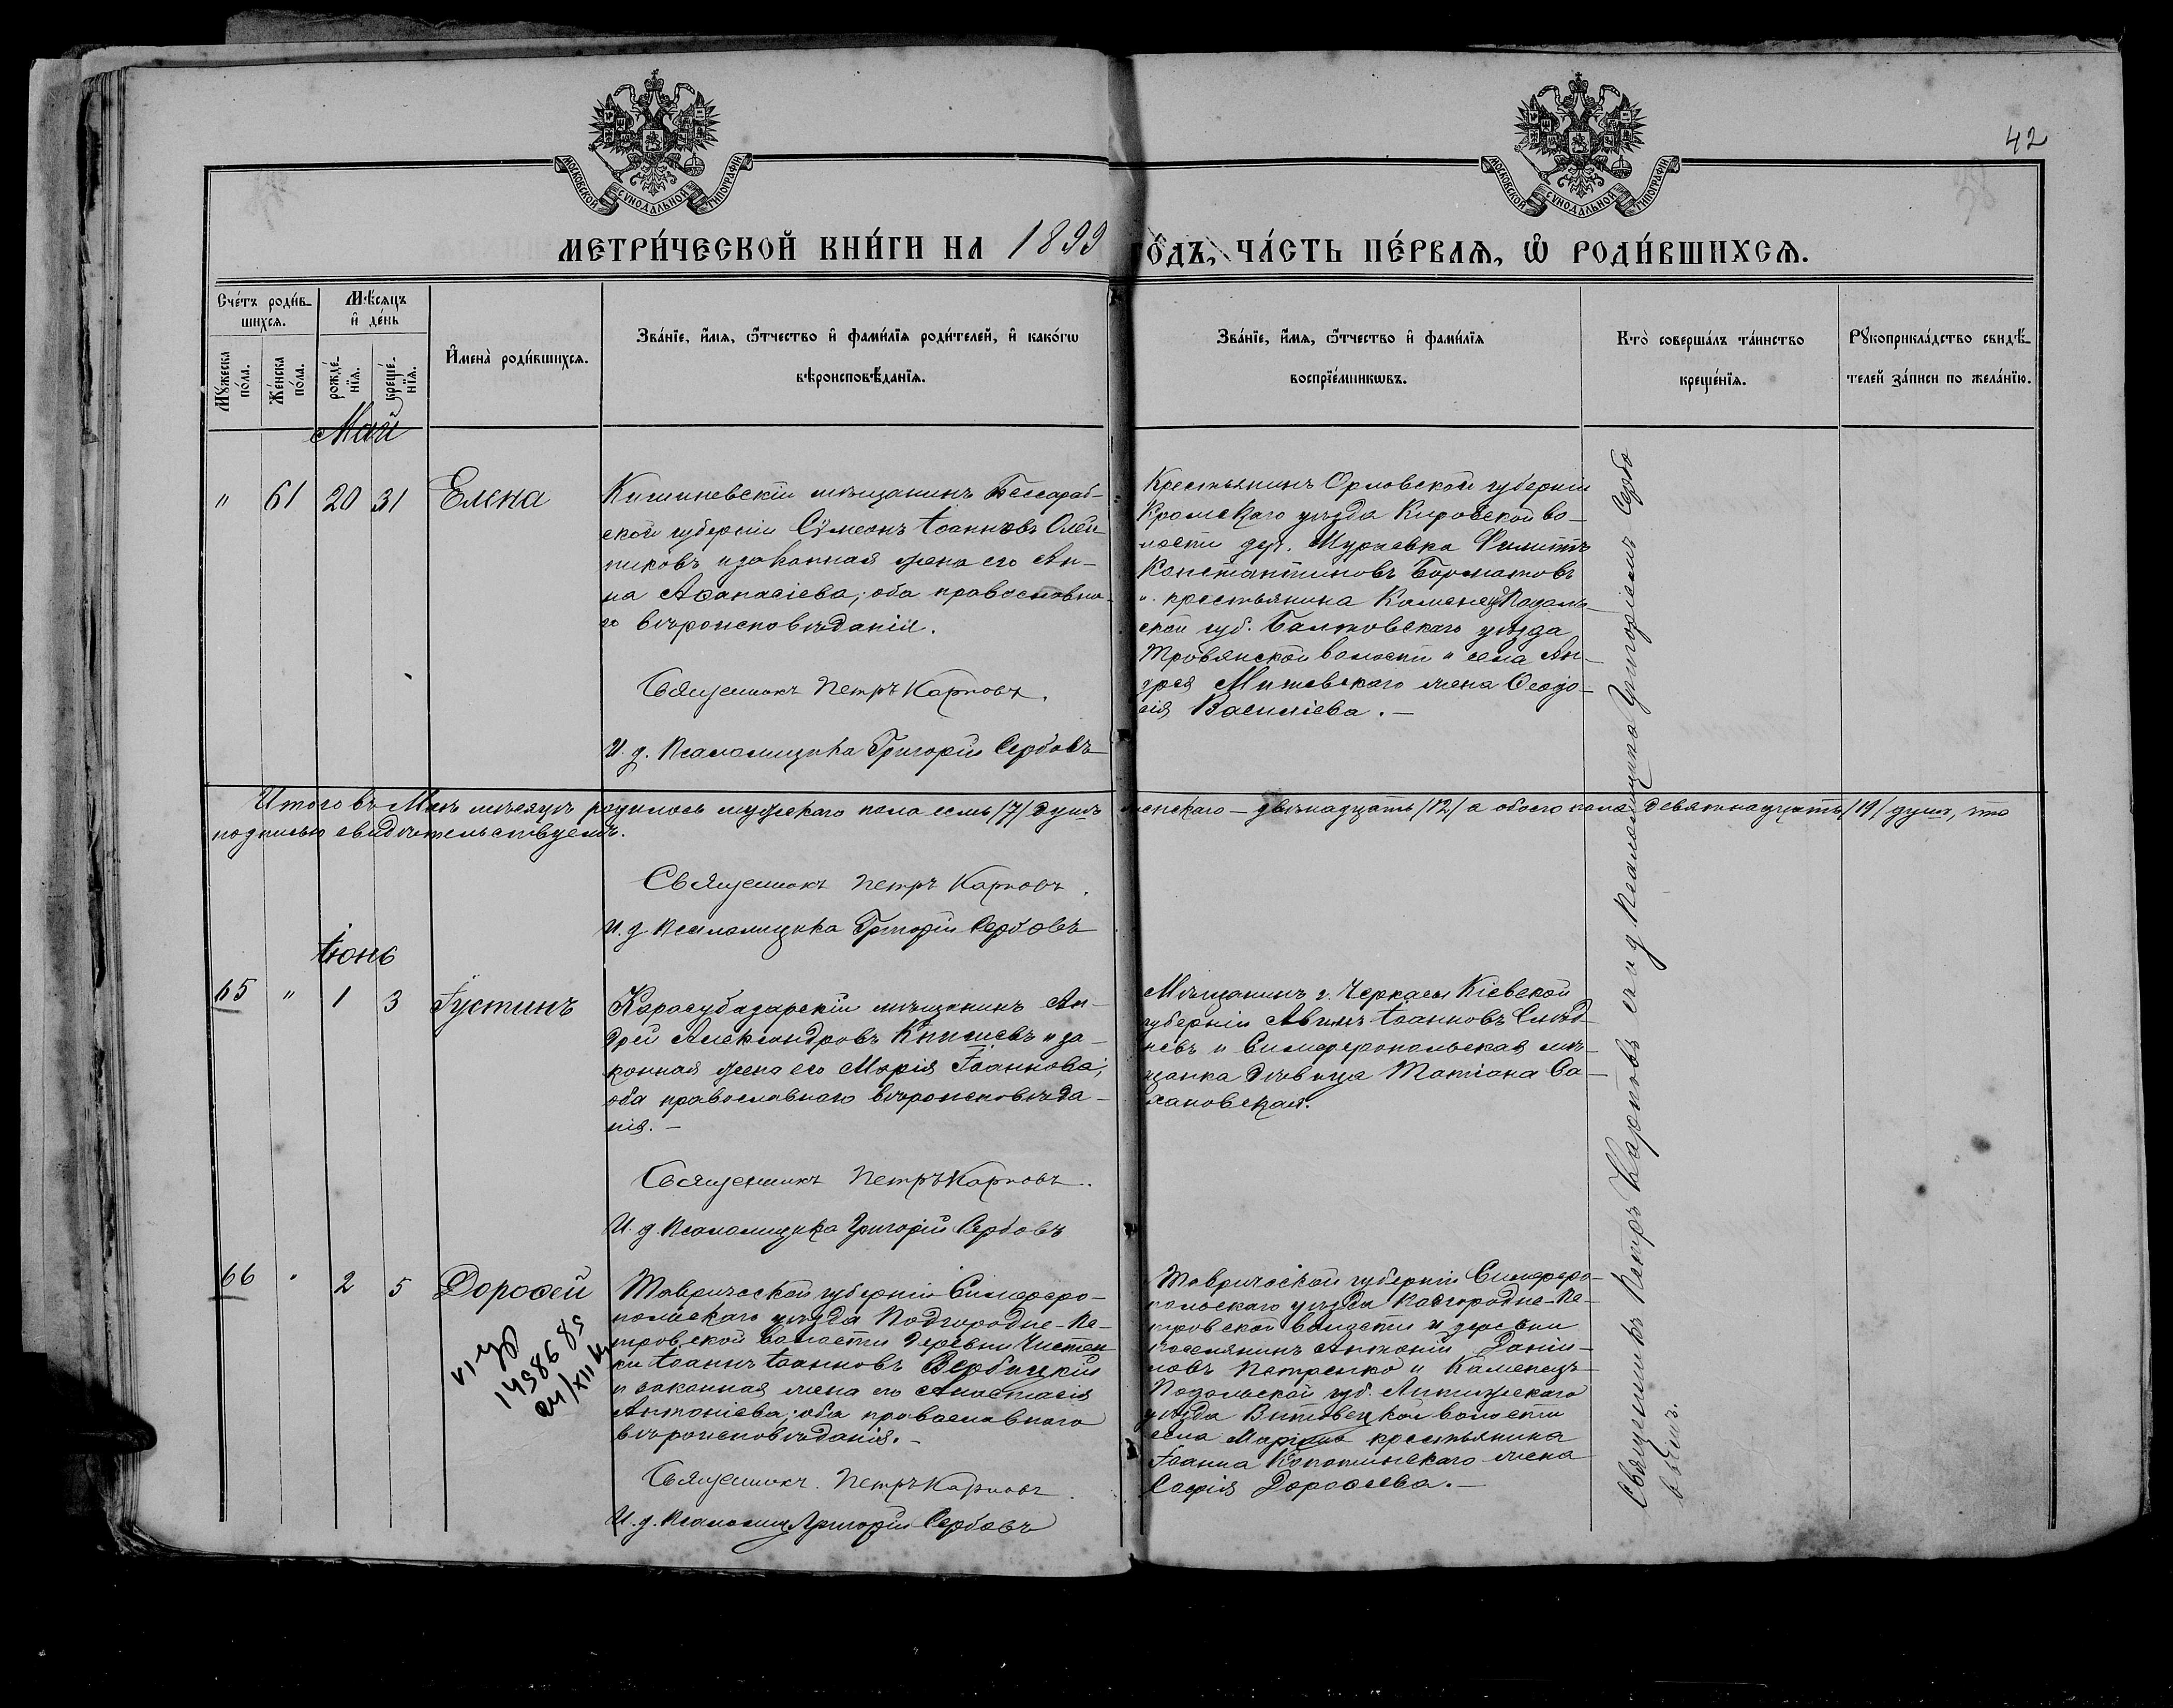 42
МОСКОВСКОЙ СѴНОДАЛЬНОЙ ТИПОГРАФІИ
МОСКОВСКОЙ СѴНОДАЛЬНОЙ ТИПОГРАФІИ
МЕТРИ́ЧЕСКОЙ КНИ́ГИ НА 1899 ГО́ДЪ, ЧА́СТЬ ПЕ́РВАѦ, Ѿ РОДИ́ВШИХСѦ.
Сче́тъ роди́в-
шихсѧ.
Мѣ́сѧцъ
и҆ де́нь
Мꙋжеска
по́ла.
Же́нска
по́ла.
рожде́-
нїѧ.
креще́-
нїѧ.
И҆мена̀ роди́вшихсѧ.
Зва́нїе, и҆́мѧ, ѻ҆́тчество и҆ фами́лїѧ роди́телей, и҆ како́гѡ
вѣроисповѣ́данїѧ.
Зва́нїе, и҆́мѧ, ѻ҆́тчество и҆ фами́лїѧ
воспрїе́мникѡвъ.
Кто̀ соверша́лъ та́инство
креще́нїѧ.
Рꙋкоприкла́дство свидѣ́-
телей за́писи по жела́нїю.
Май
" 61 20 31 Елена
Кишиневскій мѣщанинъ Бессараб-
ской губерніи Сѵмеонъ Іоанновъ Олей
никовъ и законная жена его Ан-
на Аѳанасіева; оба православна-
го вѣроисповѣданія.
Священникъ Петръ Карповъ.
И. д. Псаломщика Григорій Сербовъ
Крестьянинъ Орловской губерніи
Кромскаго уѣзда Кировской во-
лости дер. Мураевка Филиппъ
Константиновъ Борматовъ
и крестьянина Каменец Подоль-
ской губ. Балтовскаго уѣзда
Тровянской волости и села Ан-
дрея Митовскаго жена Ѳеодо-
сія Василіева. —
Итого въ Маѣ мѣсяцѣ родилось мужескаго пола семь /7/ душъ женскаго — двѣнадцать /12/ а обоего пола девятнадцать /19/ душъ, что
подписью свидѣтельствуемъ.
Священникъ Петръ Карповъ.
И. д. Псаломщика Григорій Сербовъ
Іюнь
65 " 1 3 Іустинъ
Карасубазарскій мѣщанинъ Ан-
дрей Александровъ Книшевъ и за-
конная жена его Марія Іоаннова;
оба православнаго вѣроисповѣда-
нія. —
Священникъ Петръ Карповъ.
И. д. Псаломщика Григорій Сербовъ
Мѣщанинъ г. Черкасы Кіевской
губерніи Авимъ Іоанновъ Слѣд-
невъ и Симферопольская мѣ-
щанка дѣвица Татіана Са-
хановская.
66 " 2 5 Дороѳей
Таврической губерніи Симферо-
польскаго уѣзда Подгородне-Пе-
тровской волости деревни Чистен-
ки Іоаннъ Іоанновъ Вербицкій
и законная жена его Анастасія
Антоніева; оба православнаго
вѣроисповѣданія. —
Священникъ. Петръ Карповъ.
И. д. Псаломщ Григорій Сербовъ
Таврической губерніи Симферо-
польскаго уѣзда Подгородне-Пе-
тровской волости и деревни
поселянинъ Антоній Даніи-
ловъ Петренко и Каменецъ-
Подольской губ. Литинскаго
уѣзда Витовецкой волости
села крестьянина
Іоанна жена
Софія Дороѳеева. —
Священникъ Петръ Карповъ съ и д Псаломщика Григоріемъ Сербо
вымъ.